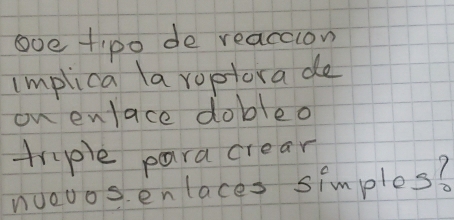 Que tipo de reaccion
implica la ruptura de
un enlace doble o
triple para crear
nuevos enlaces simples?